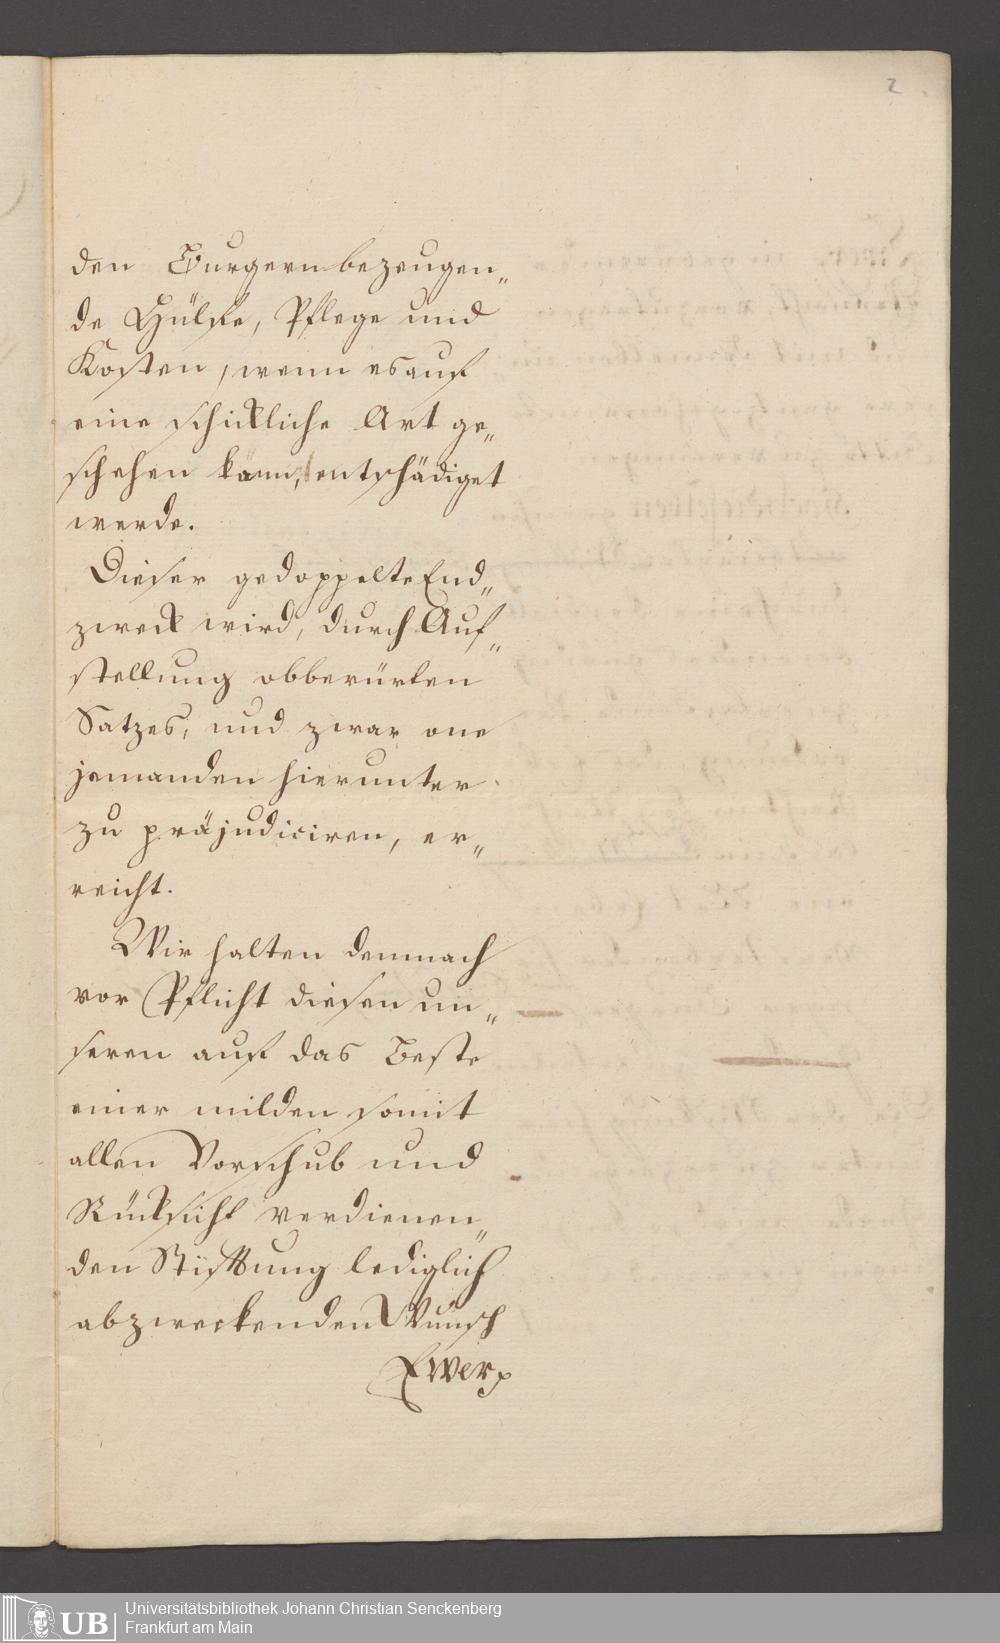 2
den Burgern bezeugen„
de Hülfe, Pflege und
Kosten, wenn es auf
eine schickliche Art ge„
schehen kann, entschädiget
werde.
Dieser gedoppelte End„
zweck wird, durch Auf„
stellung obberürten
Satzes, und zwar one
jemanden hierunter
zu präjudiciren, er„
reicht.
Wir halten demnach
vor Pflicht diesen un„
seren auf das Beste
einer milden somit
allen Vorschub und
Rücksicht verdienen„
den Stiftung lediglich
abzweckenden Wunsch
Ewer
UB
Universitätsbibliothek Johann Christian Senckenberg
Frankfurt am Main